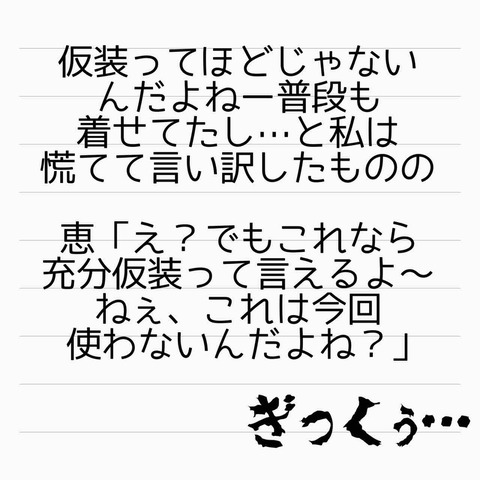 仮装ってほどじゃない
んだよねー普段も
着せてたし…と私は
慌てて言い訳したものの
恵「え？でもこれなら
充分仮装って言えるよ〜
ねぇ、これは今回
使わないんだよね？」
ぎっくぅ…